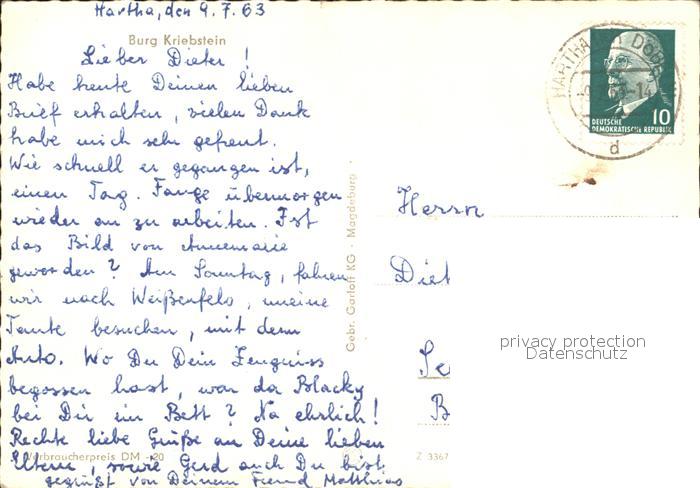 Hartha, den 9.7.63
Burg Kriebstein
Lieber Dieter!
Habe heute Deinen lieben
Brief erhalten, vielen Dank
habe mich sehr gefreut.
Wie schnell er gegangen ist,
einen Tag. Fange übermorgen
wieder an zu arbeiten. Ist
das Bild von Annemarie
geworden? Am Sonntag, fahren
wir nach Weißenfels, meine
Tante besuchen, mit dem
Auto. Wo Du Dein Zeugniss
begossen hast, war da Blacky
bei Dir im Bett? Na ehrlich!
Rechte liebe Grüße an Deine lieben
Eltern, sowie Gerd auch Du bist
gegrüßt von Deinem Freund Matthias
Verbraucherpreis DM -,20
Gebr. Garloff KG · Magdeburg
Z 3367
HARTHA
d
10
DEUTSCHE
DEMOKRATISCHE REPUBLIK
Herrn
Diet
privacy protection
Datenschutz
Se
B